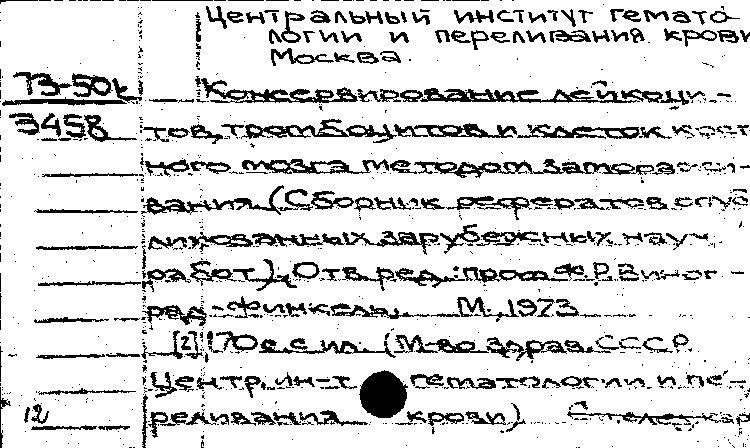 Центральный институт гемато-
логии и переливания крови
Москва.
73-50к
Консервирование лейкоци-
3458
тов, тромбоцитов и клеток кост
ного мозга методом заморажи-
вания. (Сборник рефератов опуб
ликованных зарубежных науч
работ). Отв. ред.: проф. Ф.Р. Виног-
рад-Финкель. М., 1973
[2] 170 с. с ил. (М-во здрав. СССР.
Центр. ин-т гематологии и пе-
12
реливания крови)